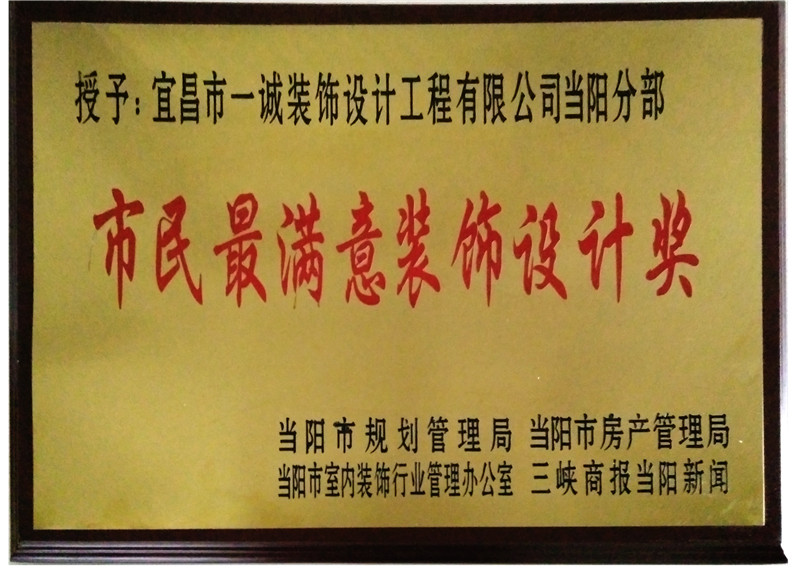 授予：宜昌市一诚装饰设计工程有限公司当阳分部
市民最满意装饰设计奖
当阳市规划管理局 当阳市房产管理局
当阳市室内装饰行业管理办公室 三峡商报当阳新闻